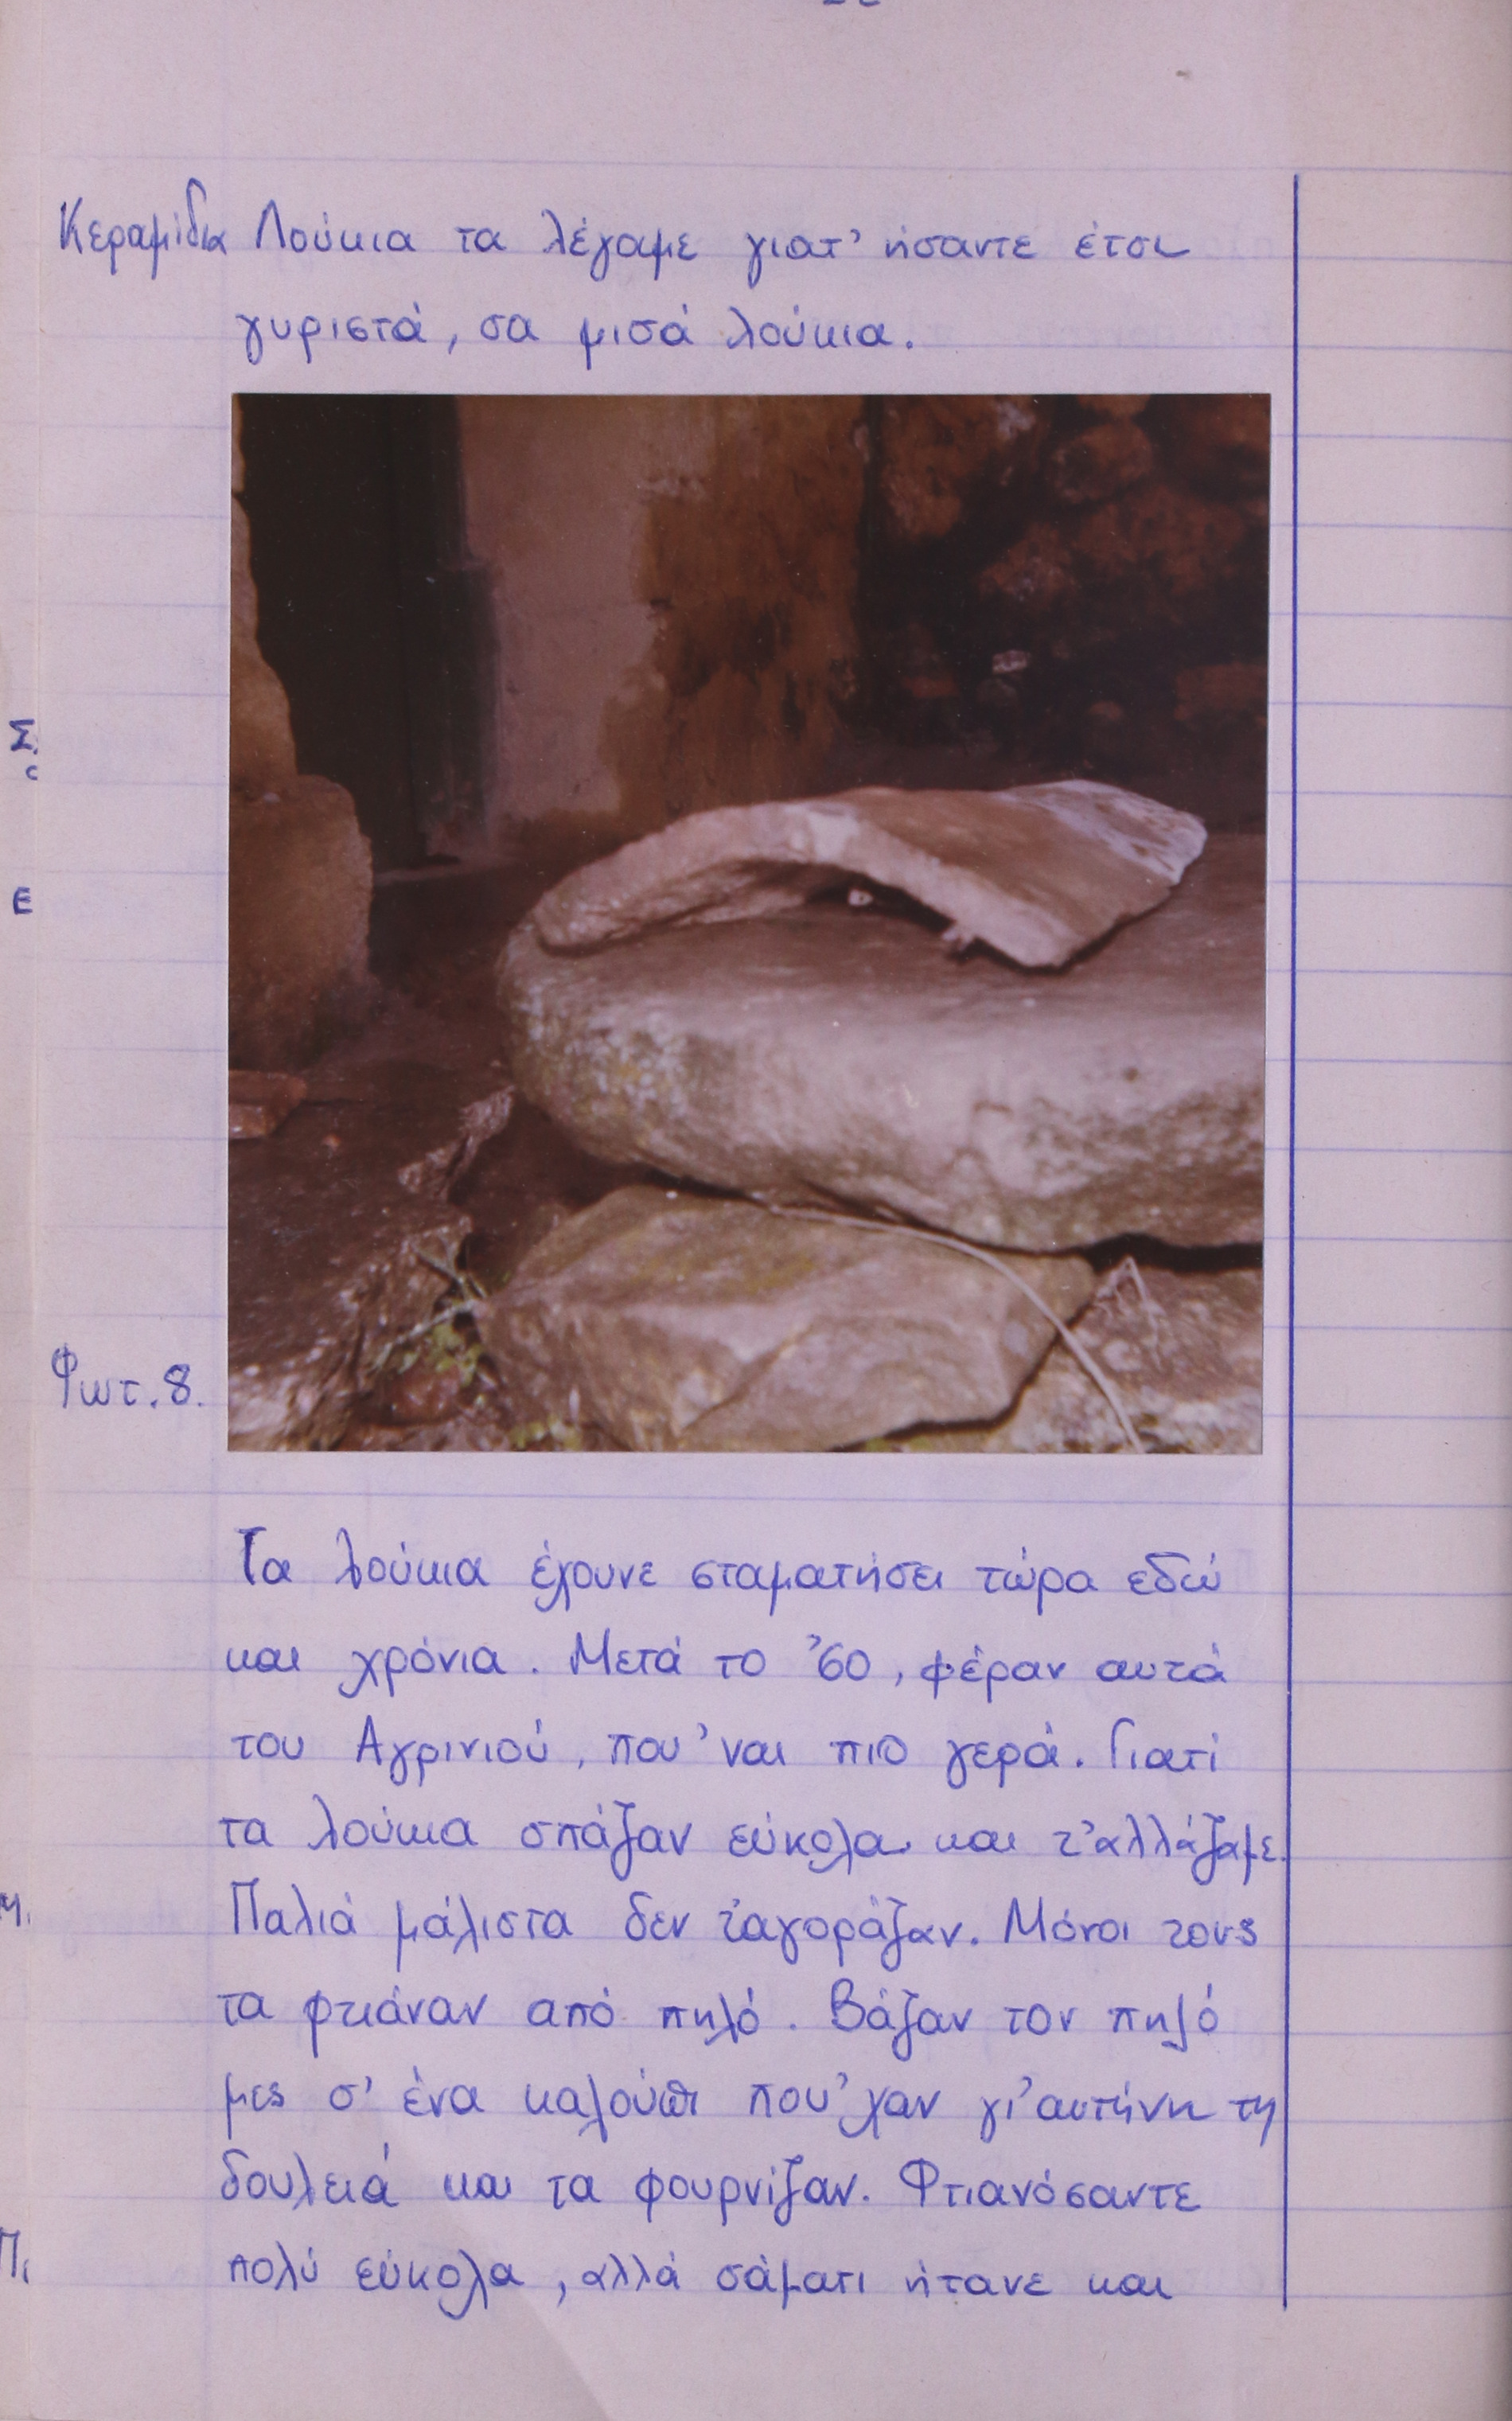 Κεραμίδια Λούκια τα λέγαμε γιατ' ήσαντε έτσι
γυριστά, σα μισά λούκια.
Φωτ. 8.
Τα λούκια έχουνε σταματήσει τώρα εδώ
και χρόνια. Μετά το '60, φέραν αυτά
του Αγρινιού, που 'ναι πιο γερά. Γιατί
τα λούκια σπάζαν εύκολα και τ' αλλάζαμε.
Παλιά μάλιστα δεν τ' αγοράζαν. Μόνοι τους
τα φτιάναν από πηλό. Βάζαν τον πηλό
μες σ' ένα καλούπι που 'χαν γι' αυτήνη τη
δουλειά και τα φουρνίζαν. Φτιανόσαντε
πολύ εύκολα, αλλά σάματι ήτανε και